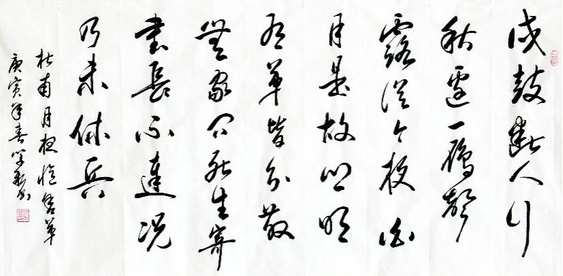 戍鼓斷人行
秋邊一雁聲
露從今夜白
月是故鄉明
有弟皆分散
無家問死生寄
書長不達況
乃未休兵
杜甫月夜憶舍弟
庚寅年春